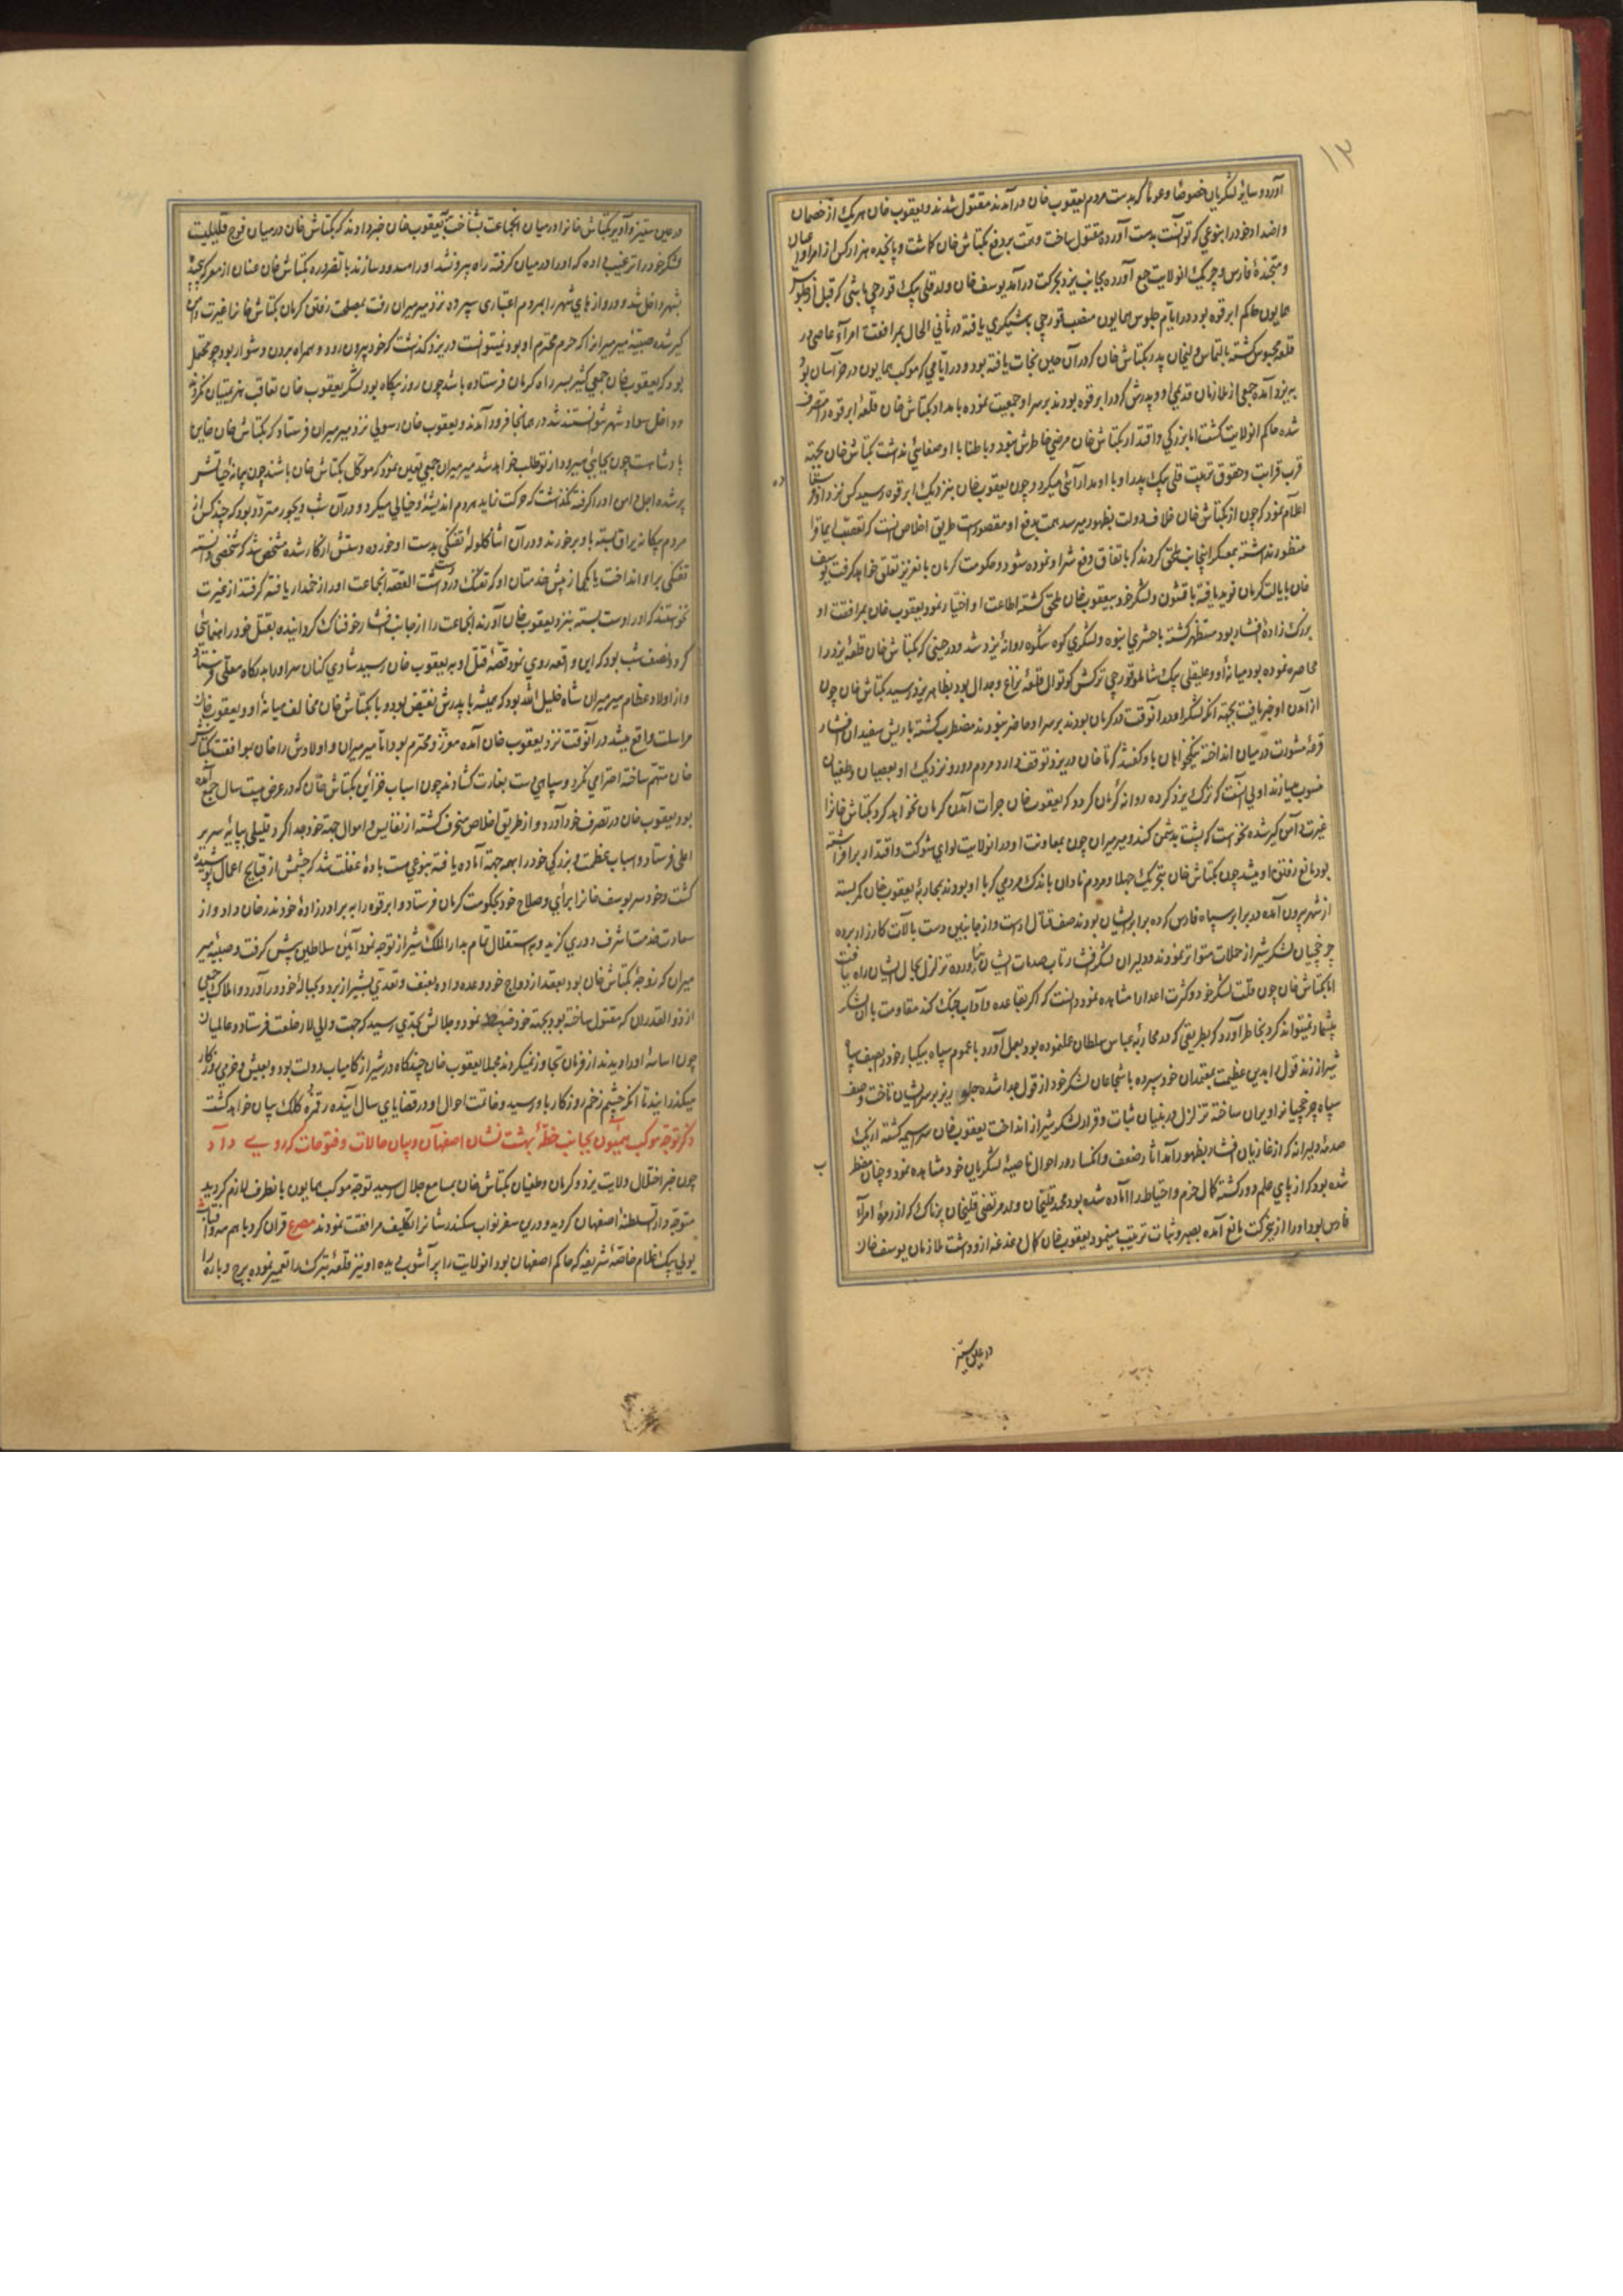 ۱۳
آورد و سایر لشکریان خصوصا و عموما که بدست مردم یعقوب خان درآمدند مقتول شدند و یعقوب خان هر یک از خصمان
و اضداد خود را بنوعی که توانست بدست آورده مقتول ساخت و همت بر دفع بکتاش خان گماشت و پانجده هزار کس از امرا و اعیان
و متجنده فارس و چریک انولایت جمع آورده بجانب یزد بحرکت درآمد یوسف خان ولد قلی بیک قورچی باشی که قبل از جلوس
همایون حاکم ابرقوه بود در ایام جلوس همایون منصب قورچی باشیگری یافته در ثانی الحال بمرافقت امرآء عاصی در
قلعه محبوس گشته بالتماس ولیخان پدر بکتاش خان که در آن حین نجات یافته بود و در ایامی که موکب همایون در خراسان بود
به یزد آمده جمعی از ملازمان قدیمی او و پدرش که در ابرقوه بودند بر سر او جمعیت نموده بامداد بکتاش خان قلعه ابرقوه را متصرف
شده حاکم انولایت گشت اما بزرگی و اقتدار بکتاش خان مرضی خاطرش نبود و باطنا با او صفائی نداشت بکتاش خان بجهة
قرب قرابت و حقوق تربیت قلی بیک پدر او با او مدارائی میکرد و چون یعقوب خان بنزدیک ابرقوه رسید کس نزد او فرستاد
اعلام نمود که چون از بکتاش خان خلاف دولت بظهور میرسد همت بدفع او مقصور است طریق اخلاص انست که تعصب ایماقرا
منظور نداشته بمعسکر اینجانب ملحق گردند که باتفاق دفع شر او نموده شود و حکومت کرمان بانعزیز تعلق خواهد گرفت یوسف
خان بایالت کرمان نوید یافته با قشون و لشکر خود بیعقوب خان ملحق گشته اطاعت او اختیار نمود یعقوب خان بمرافقت او
بزرگ زاده افشار بود مستظهر گشته با حشری انبوه و لشکری کوه شکوه روانه یزد شد و در حینی که بکتاش خان قلعه یزد را
محاصره نموده بود میانه او و علیقلی بیک شاملو قورچی ترکش کوتوال قلعه نزاع و جدال بود بظاهر یزد رسید بکتاش خان چون
از آمدن او خبر یافت بجهة انکه لشکر او در انوقت در کرمان بودند بر سر او حاضر نبودند مضطرب گشته با ریش سفیدان افشار
قرعه مشورت در میان انداخته نیکخواهان باو گفتند که تا خان در یزد توقف دارد مردم دور و نزدیک او بعصیان و طغیان
منسوب میسازند اولی انست که ترک یزد کرده روانه کرمان گردد که یعقوب خان جرات آمدن کرمان نخواهد کرد بکتاش خانرا
غیرت دامن گیر شده نخواست که پشت بدشمن کند و میرمیران چون بمعاونت او در انولایت لوای شوکت و اقتدار برافراشته
بود مانع رفتن او میشد چون بکتاش خان بتحریک جهلا و مردم نادان باندک مردمی که با او بودند بمحاربه یعقوب خان کمر بسته
از شهر بیرون آمده در برابر سپاه فارس کرده برابر ایشان بودند صف قتال آراست و از جانبین دست بالآت کارزار برده
چرخچیان لشکر شیراز حملات متواتر نمودند و دلیران لشکر افشار تاب صدمات ایشان نیاورده تزلزل بحال ایشان راه یافت
اما بکتاش خان چون قلت لشکر خود و کثرت اعدا را مشاهده نمود دانست که اگر بقاعده و آداب جنگ کند مقاومت با آن لشکر
بیشمار نمیتواند کرد بخاطر آورد که بطریقی که در محاربه عباس سلطان عملنموده بود بعمل آورد با عموم سپاه بیکبار خود را بصف سپاه
شیراز زند قول را بدین عظیمت بمعتمدان خود سپرده با شجاعان لشکر خود از قول جدا شده جلو ریز بر سر ایشان تاخت و صف
سپاه چرخچیانرا ویران ساخته تزلزل در بنیان ثبات و قرار لشکر شیراز انداخت یعقوب خان سراسیمه گشته از یک
صدمه دلیرانه که از غازیان افشار بظهور آمد آثار ضعف و انکسار در احوال ناصیه لشکریان خود مشاهده نمود و چنان مضطر
شده بود که از پای علم دور گشته کمال حزم و احتیاط را آماده شده بود محمد قلیخان ولد مرتضی قلیخان پرناک که از زمره امرآء
فارس بود او را از بحرکت مانع آمده بصبر و ثبات ترغیب مینمود یعقوب خان کمال دغدغه از و داشت ملازمان یوسف خان
در عین ستیز
در عین ستیز و آویز بکتاش خانرا در میان انجماعت بشناخت بیعقوب خان خبر دادند که بکتاش خان در میان فوج قلیلیست
لشکر خود را ترغیب داده که او را در میان گرفته راه بیرونشد او را مسدود سازند بالضروره بکتاش خان عنان از معرکه پیچیده
بشهر داخل شد و دروازهای شهر را بمردم اعتباری سپرده نزد میرمیران رفت بمصلحت رفتن کرمان بکتاش خانرا غیرت دامن
گیر شده صبیه میرمیران را که حرم محترم او بود نمیتوانست در یزد گذاشت که خود بیرون رود و همراه بردن دشوار بود چو محتمل
بود که یعقوب خان جمعی کثیر بسر راه کرمان فرستاده باشد چون روز بیگاه بود لشکر یعقوب خان تعاقب هزیمتیان نکردند
و داخل سواد شهر نتوانستند شد در همانجا فرود آمدند و یعقوب خان رسولی نزد میرمیران فرستاد که بکتاش خان خاین
پادشاهست چون بجایی میرود از تو طلب خواهد شد میرمیران جمعی تعین نمود که موکل بکتاش خان باشند چون پیمانه حیاتش
پر شده اجل دامن او را گرفته نگذاشت که حرکت نماید هر دم اندیشه و خیالی میکرد و در آن شب دیجور متردد بود که چند کس از
مردم بیگانه یراق بسته باو برخوردند و در آن اثنا گلوله تفنگی بدست او خورده دستش از کار شده مشخص نشد که شخصی دانسته
تفنگی بر او انداخت یا یکی از پیش خدمتان او که تفنگ در دست داشت القصه انجماعت او را زخمدار یافته گرفتند از غیرت
نخواستند که او را دست بسته بنزد یعقوب خان آورند انجماعت را از جانب افشار خوفناک گردانیده بقتل خود راهنمائی
کرد و نصف شب بود که این واقعه روی نمود قضه قتل او به یعقوب خان رسید شادی کنان سر او را بدرگاه معلی فرستاد
و از اولاد عظام میرمیران شاه خلیل الله بود که همیشه با پدرش نقیض بود و با بکتاش خان مخالف میانه او و یعقوب خان
مراسلت واقع میشد در انوقت نزد یعقوب خان آمده معزز و محترم بود اما میرمیران و اولادش را خان بموافقت بکتاش
خان متهم ساخته احترامی نکرد و سپاهی دست بغارت گشادند چون اسباب خزاین بکتاش خان که در عرض بیست سال جمع آمده
بود یعقوب خان در تصرف خود آورد و از طریق اخلاص منحرف گشته از نفایس و اموال جهة خود جدا کرد قلیلی بپایه سریر
اعلی فرستاد و اسباب عظمت و بزرگی خود را همه جهة آماده یافته بنوعی مست باده غفلت شد که چشمش از قبایح اعمال پوشیده
گشت و خود سر یوسف خانرا برأی و صلاح خود بحکومت کرمان فرستاد و ابرقوه را به برادرزاده خود ندر خان داد و از
سعادت خدمت اشرف دوری گزید و باستقلال تمام بدار الملک شیراز توجه نمود آئین سلاطین پیش گرفت و صبیه میر
میران که زوجه بکتاش خان بود بعقد ازدواج خود وعده داده بعنف و تعدی بشیراز برد و بحباله خود درآورد و املاک جمعی
از ذوالقدران که مقتول ساخته بود بجهة خود ضبط نمود و جلالش بحدی رسید که جهت والی لار خلعت فرستاد و عالمیان
چون اساسه او را دیدند از فرمان تجاوز نمیکردند مجملا یعقوب خان چندگاه در شیراز کامیاب دولت بود و بعیش و خرمی روزگار
میگذرانید تا انکه چشم زخم روزگار باو رسید و خاتمت احوال او در قضایای سال آینده رقمزده کلک بیان خواهد گشت
ذکر توجه موکب همیون بجانب خطه بهشت نشان اصفهان و بیان حالات و فتوحات که روی داد
چون خبر اختلال ولایت یزد و کرمان و طغیان بکتاش خان بمسامع جلال رسید توجه موکب همایون بانطرف لازم گردید
متوجه دار السلطنه اصفهان گردید و درین سفر نواب سکندر شانرا تکلیف مرافقت نمودند مصرع قران کرد با هم مه و آفتاب
یولی بیک غلام خاصه شریفه که حاکم اصفهان بود انولایت را پر آشوب دیده او نیز قلعه تبرک را تعمیر نموده برج و باره را